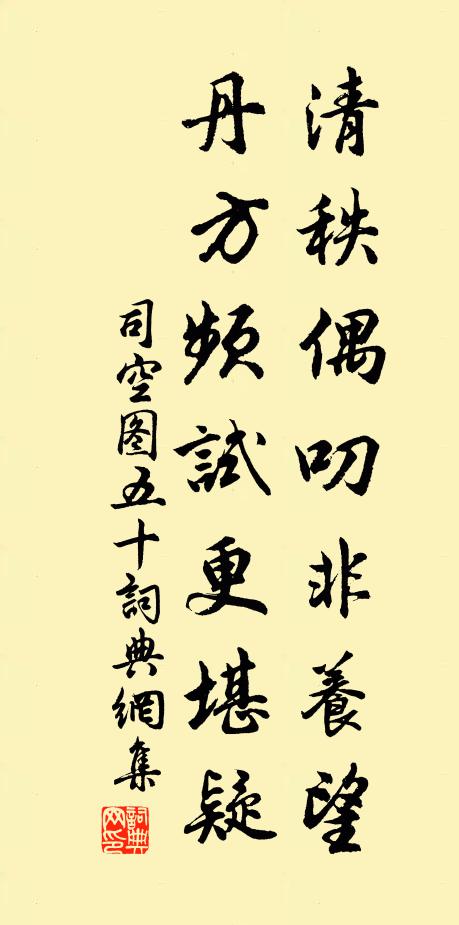 清秩偶叨非養望
丹方頻試更堪疑
司空图五十詞典網集
詞典网印